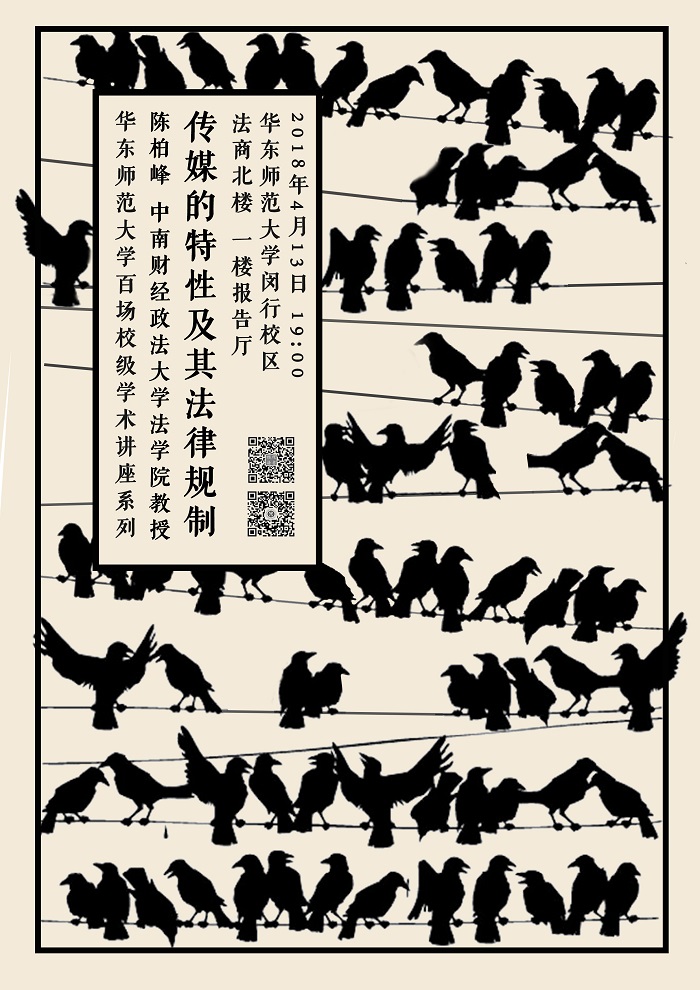 2018年4月13日 19:00
华东师范大学闵行校区
法商北楼 一楼报告厅
传媒的特性及其法律规制
陈柏峰 中南财经政法大学法学院教授
华东师范大学百场校级学术讲座系列